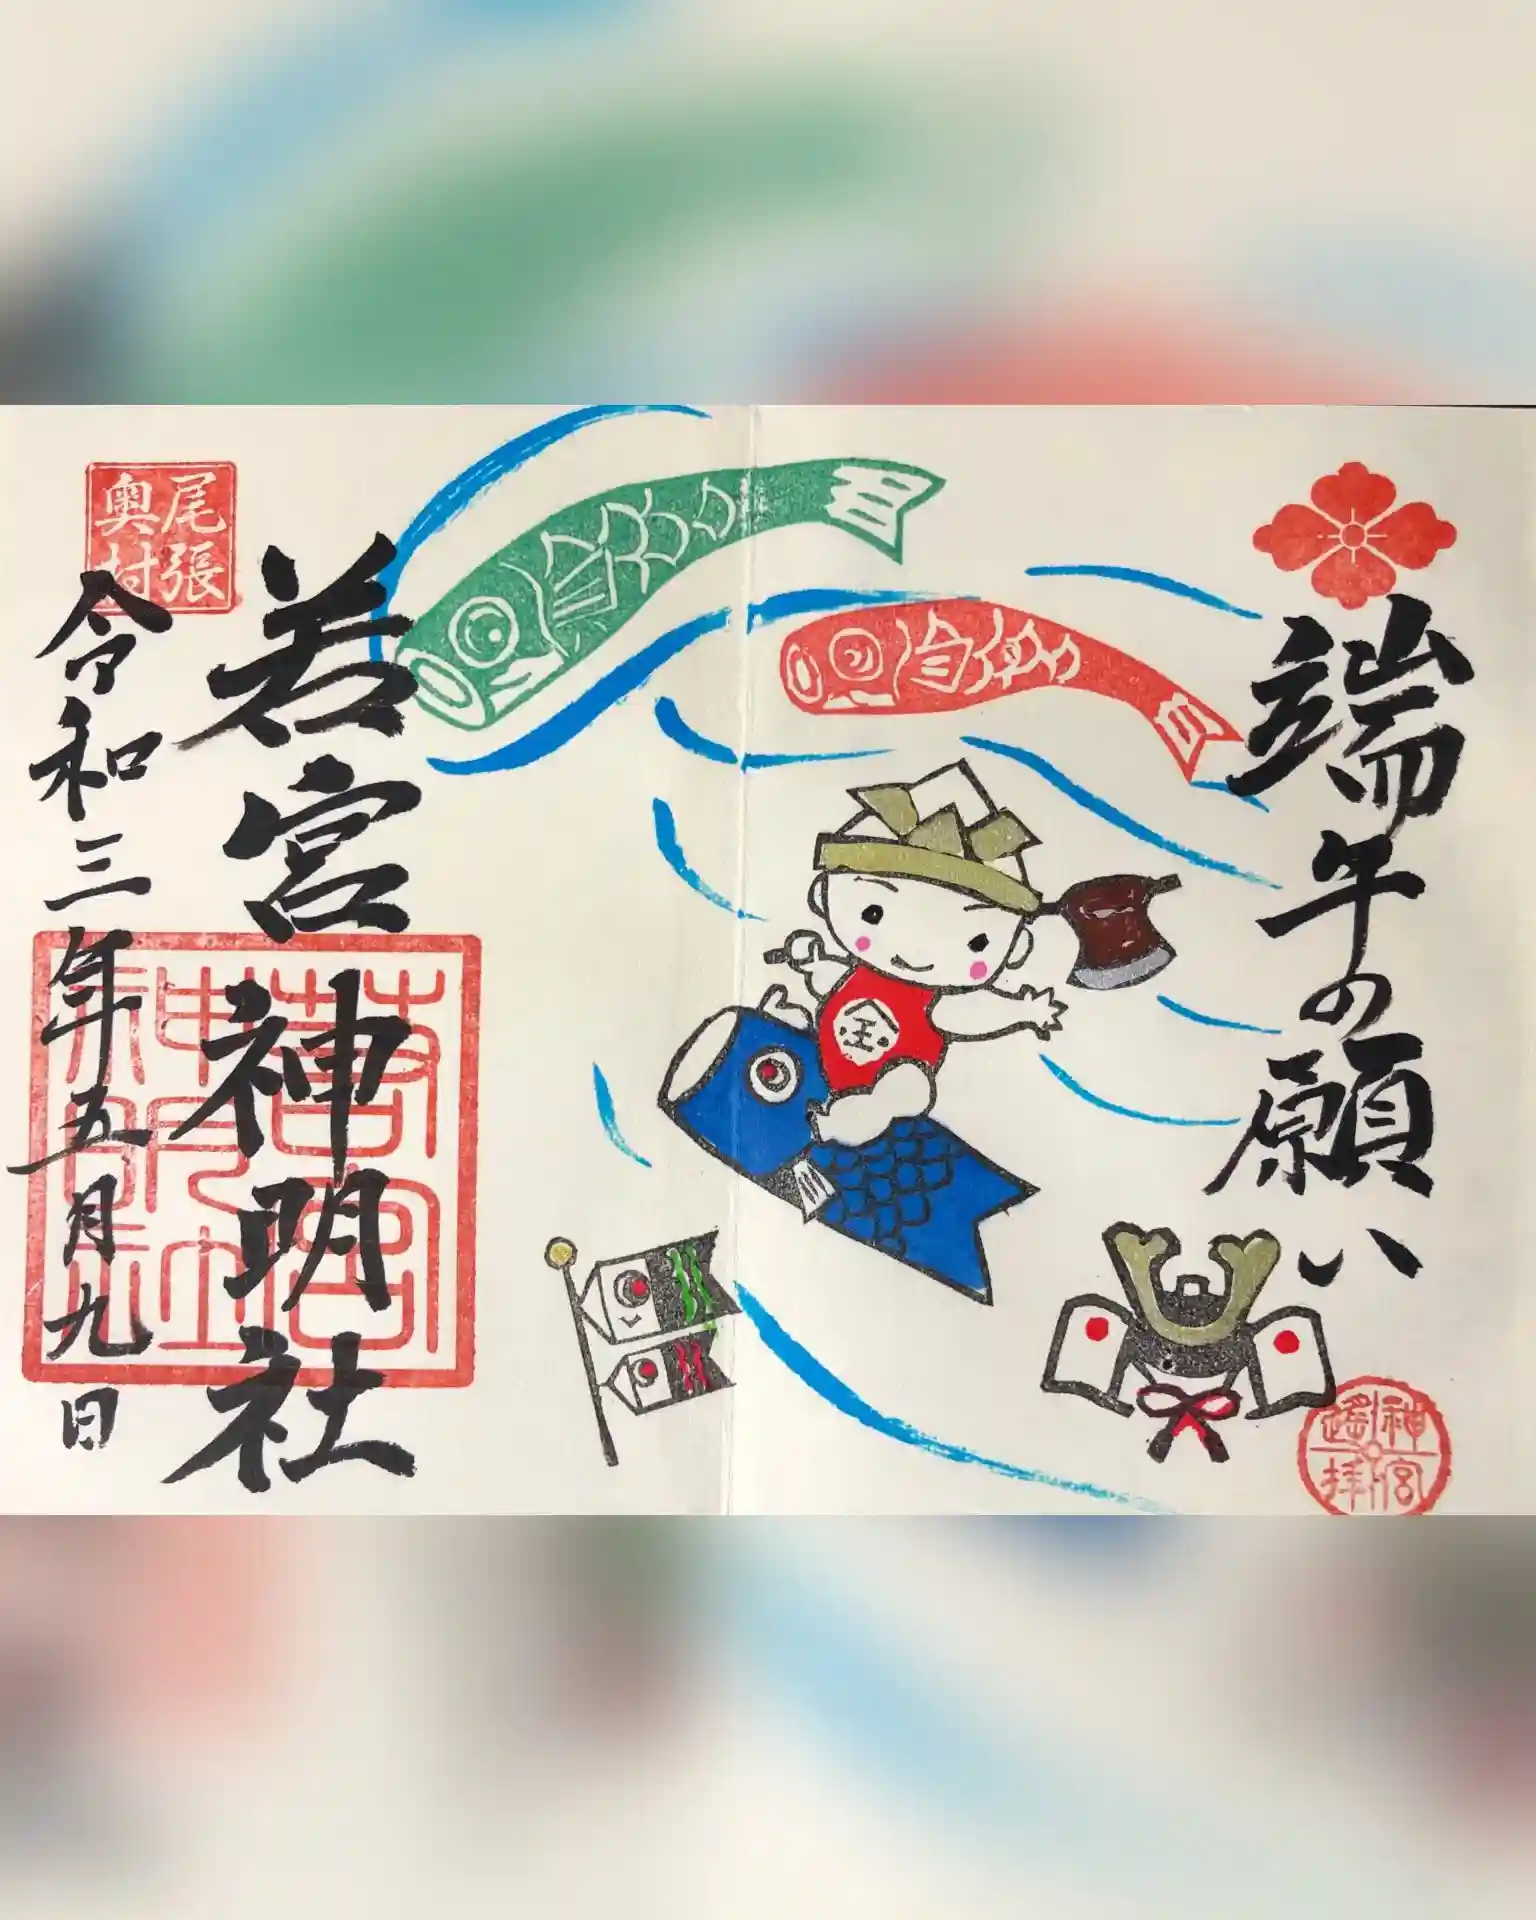 端午の願い
神宮
遙拝
金
若宮神明社
若宮
神明社
令和三年五月九日
尾張
奥村